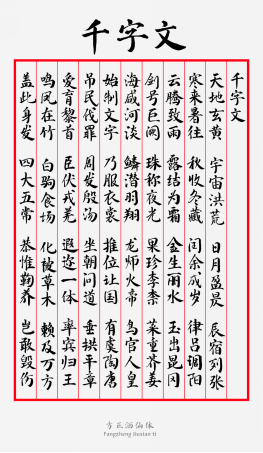 千字文
千字文
天地玄黄 宇宙洪荒 日月盈昃 辰宿列张
寒来暑往 秋收冬藏 闰余成岁 律吕调阳
云腾致雨 露结为霜 金生丽水 玉出昆冈
剑号巨阙 珠称夜光 果珍李柰 菜重芥姜
海咸河淡 鳞潜羽翔 龙师火帝 鸟官人皇
始制文字 乃服衣裳 推位让国 有虞陶唐
吊民伐罪 周发殷汤 坐朝问道 垂拱平章
爱育黎首 臣伏戎羌 遐迩一体 率宾归王
鸣凤在竹 白驹食场 化被草木 赖及万方
盖此身发 四大五常 恭惟鞠养 岂敢毁伤
方正酒仙体
Fangzheng Jiuxian ti